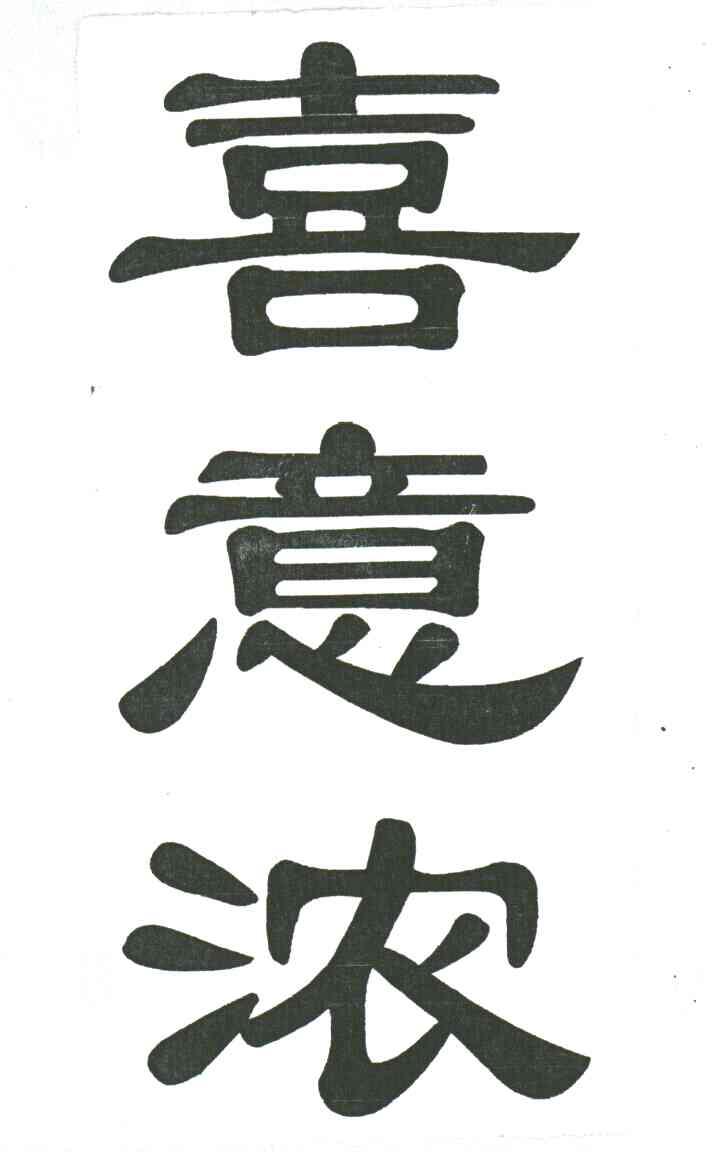 喜意浓